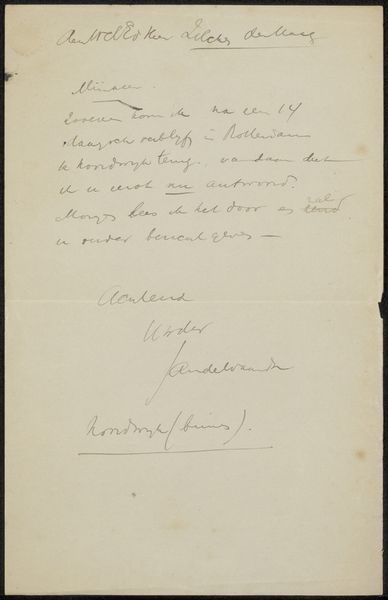 Aan WelEd Heer Zilcken den Haag
Mijnheer.
Zoo even kom ik na een 14
daagsch verblijf in Rotterdam
te Noordwijk terug, van daar dat
ik u eerst nu antwoord.
Morgen lees ik het door en zal
u onder bericht geven —
Achtend
Uw dw
Noordwijk (binnen).